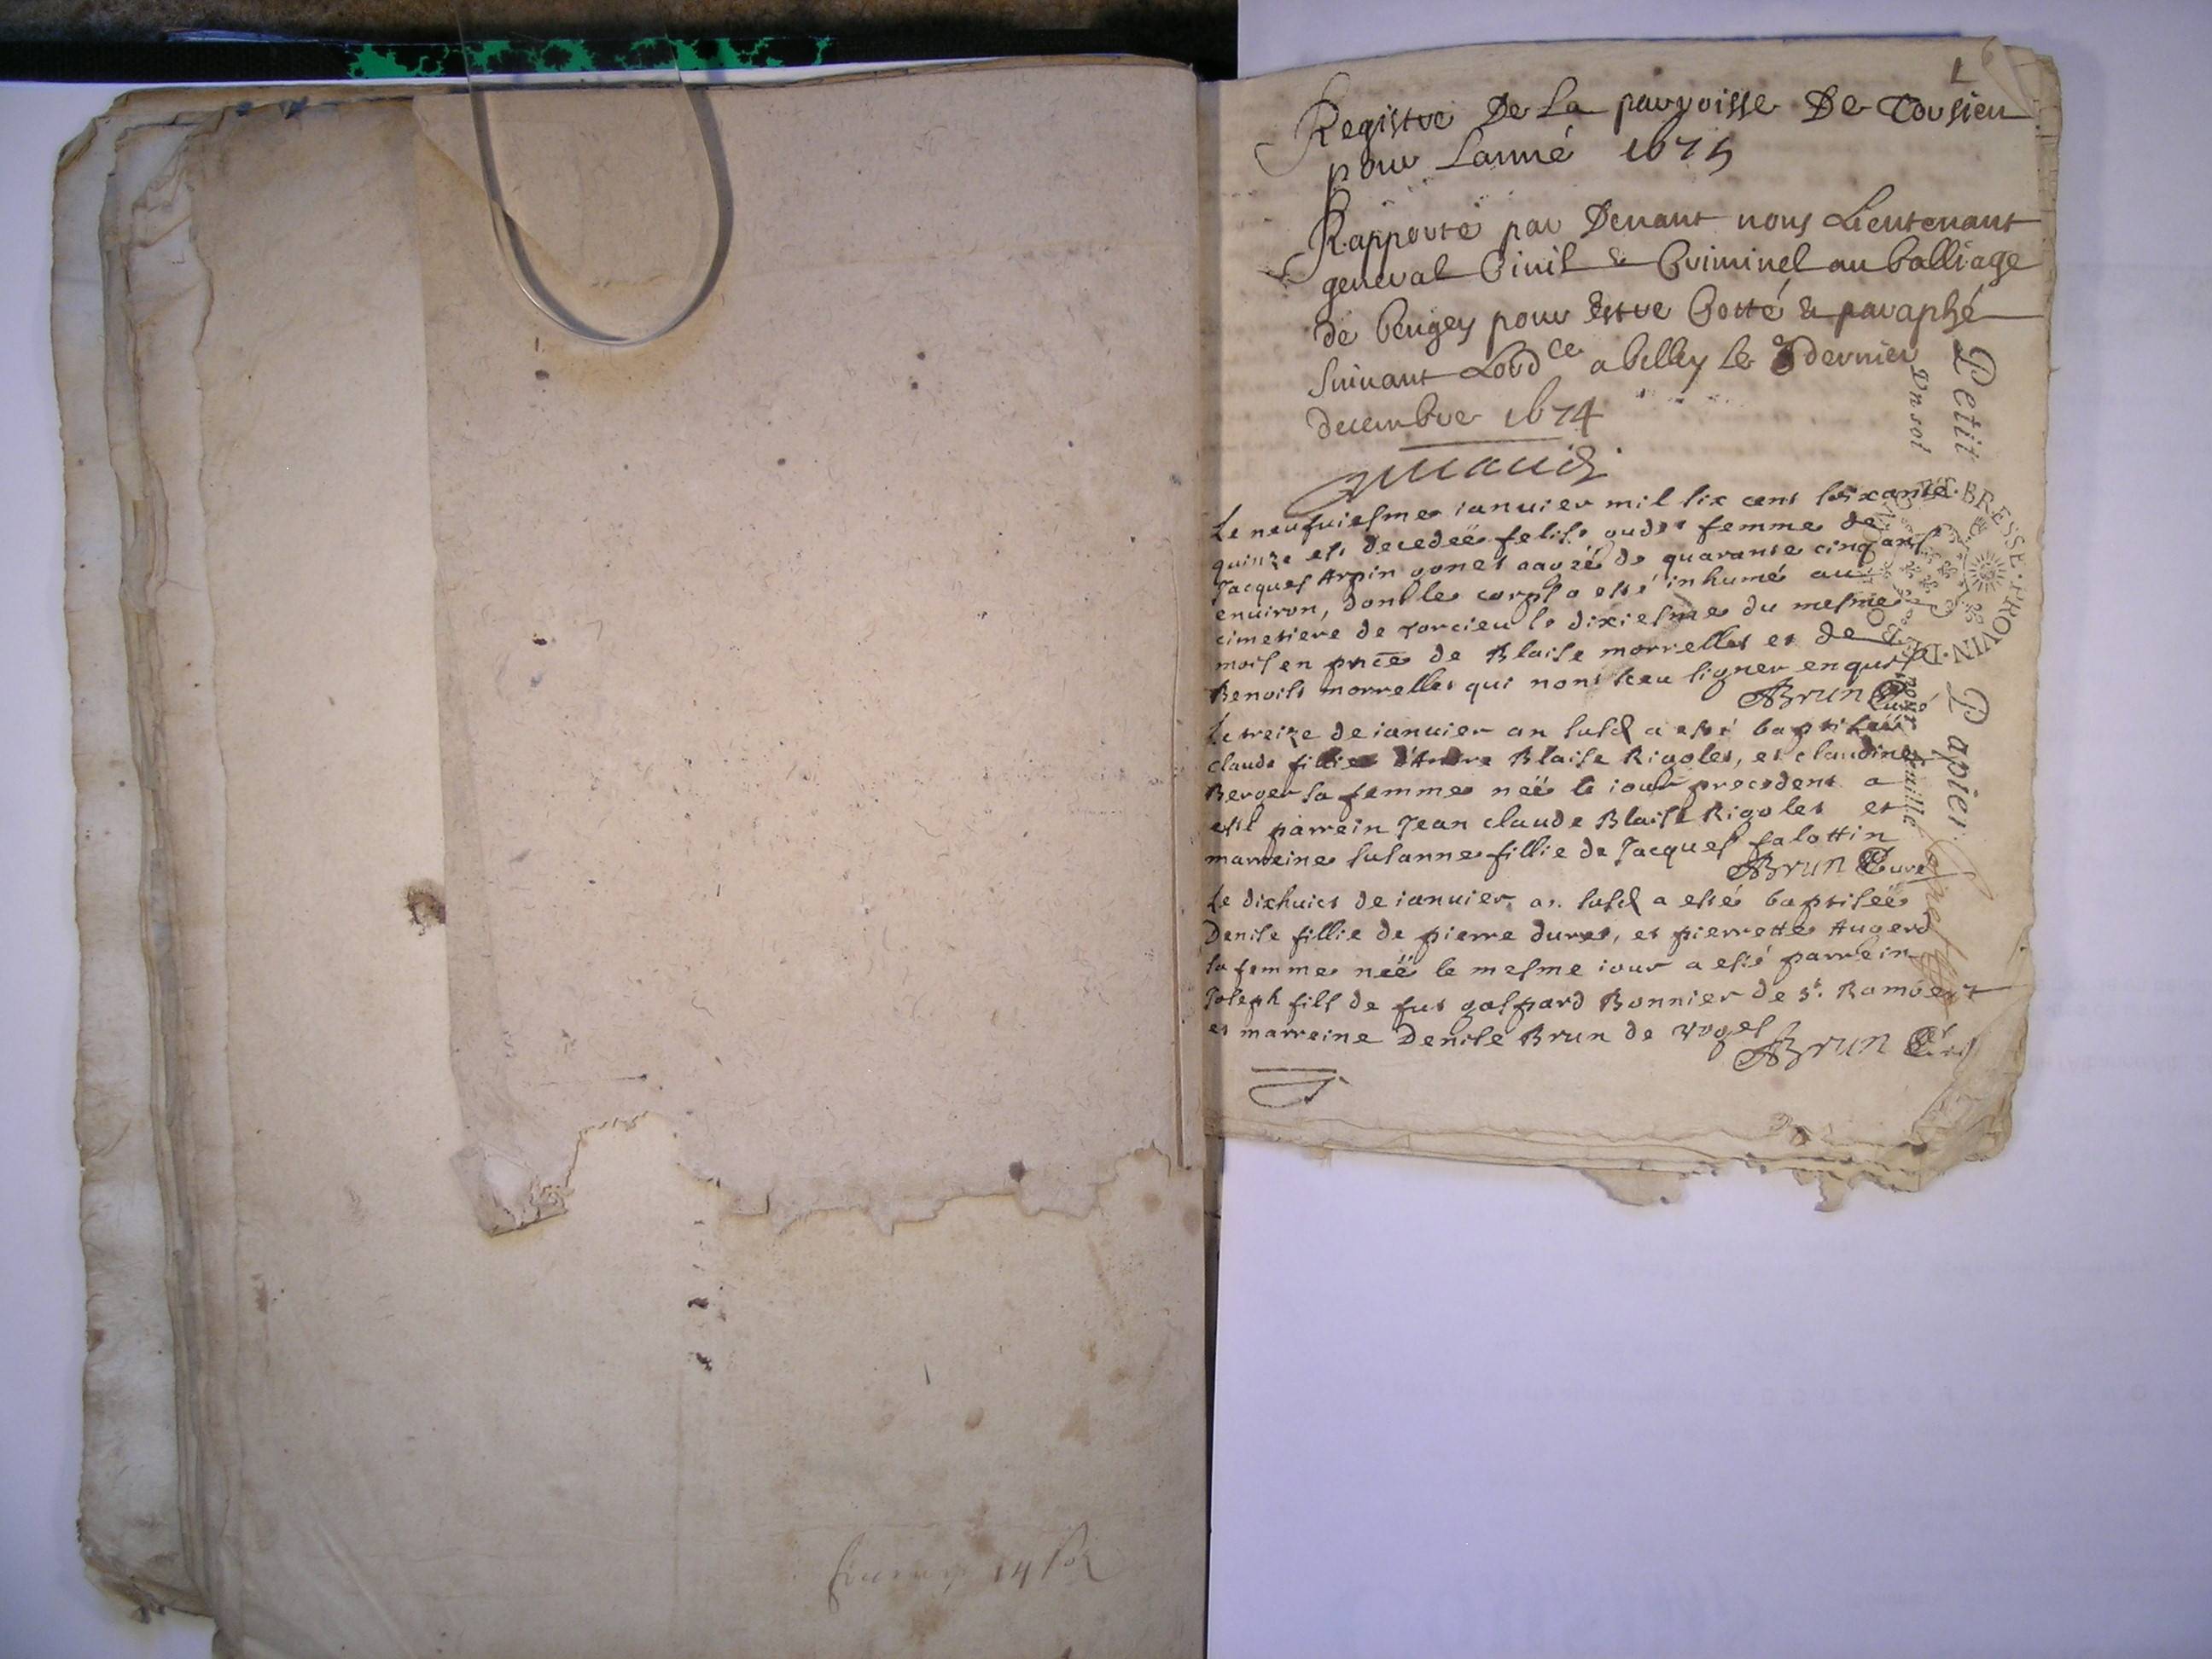 1
Registre De La parroisse De Torsieu
pour Lanné 1675
Rapporté par Deuant nous Lieutenant
general Ciuil & Criminel au balliage
de beugey pour Estre Cotté & paraphé
suiuant Lord^ce a belley le dernier
decembre 1674
Le neufuiesme ianuier mil six cens soixante
quinze est decedeë felise femme de
Jacques Arpin aagée de quarante cinq ans
enuiron, dont le corps a esté inhumé au
cimetiere de torcieu le dixiesme du mesme
mois en pnce de Blaise morrellet et de
Benoist morrellet qui nont sceu signer enquis
Brun Curé
Le treize de ianuier an susd a esté baptiseë
claude fillie Blaise Rigolet, et claudine
Berger sa femme neë le iour precedent a
esté parrein Jean claude Blaise Rigolet et
marreine susanne fillie de Jacques falottin
Brun Curé
Le dixhuict de ianuier an susd a esté baptiseë
Denise fillie de pierre duret, et pierrette Augerd
sa femme neë le mesme iour a esté parrein
Joseph fils de fut gaspard Bonnier de St. Rambert
et marreine Denise Brun de vogel
Brun Curé
Petit Papier
Un sol pour feuille
BRESSE PROVIN DE BO
14